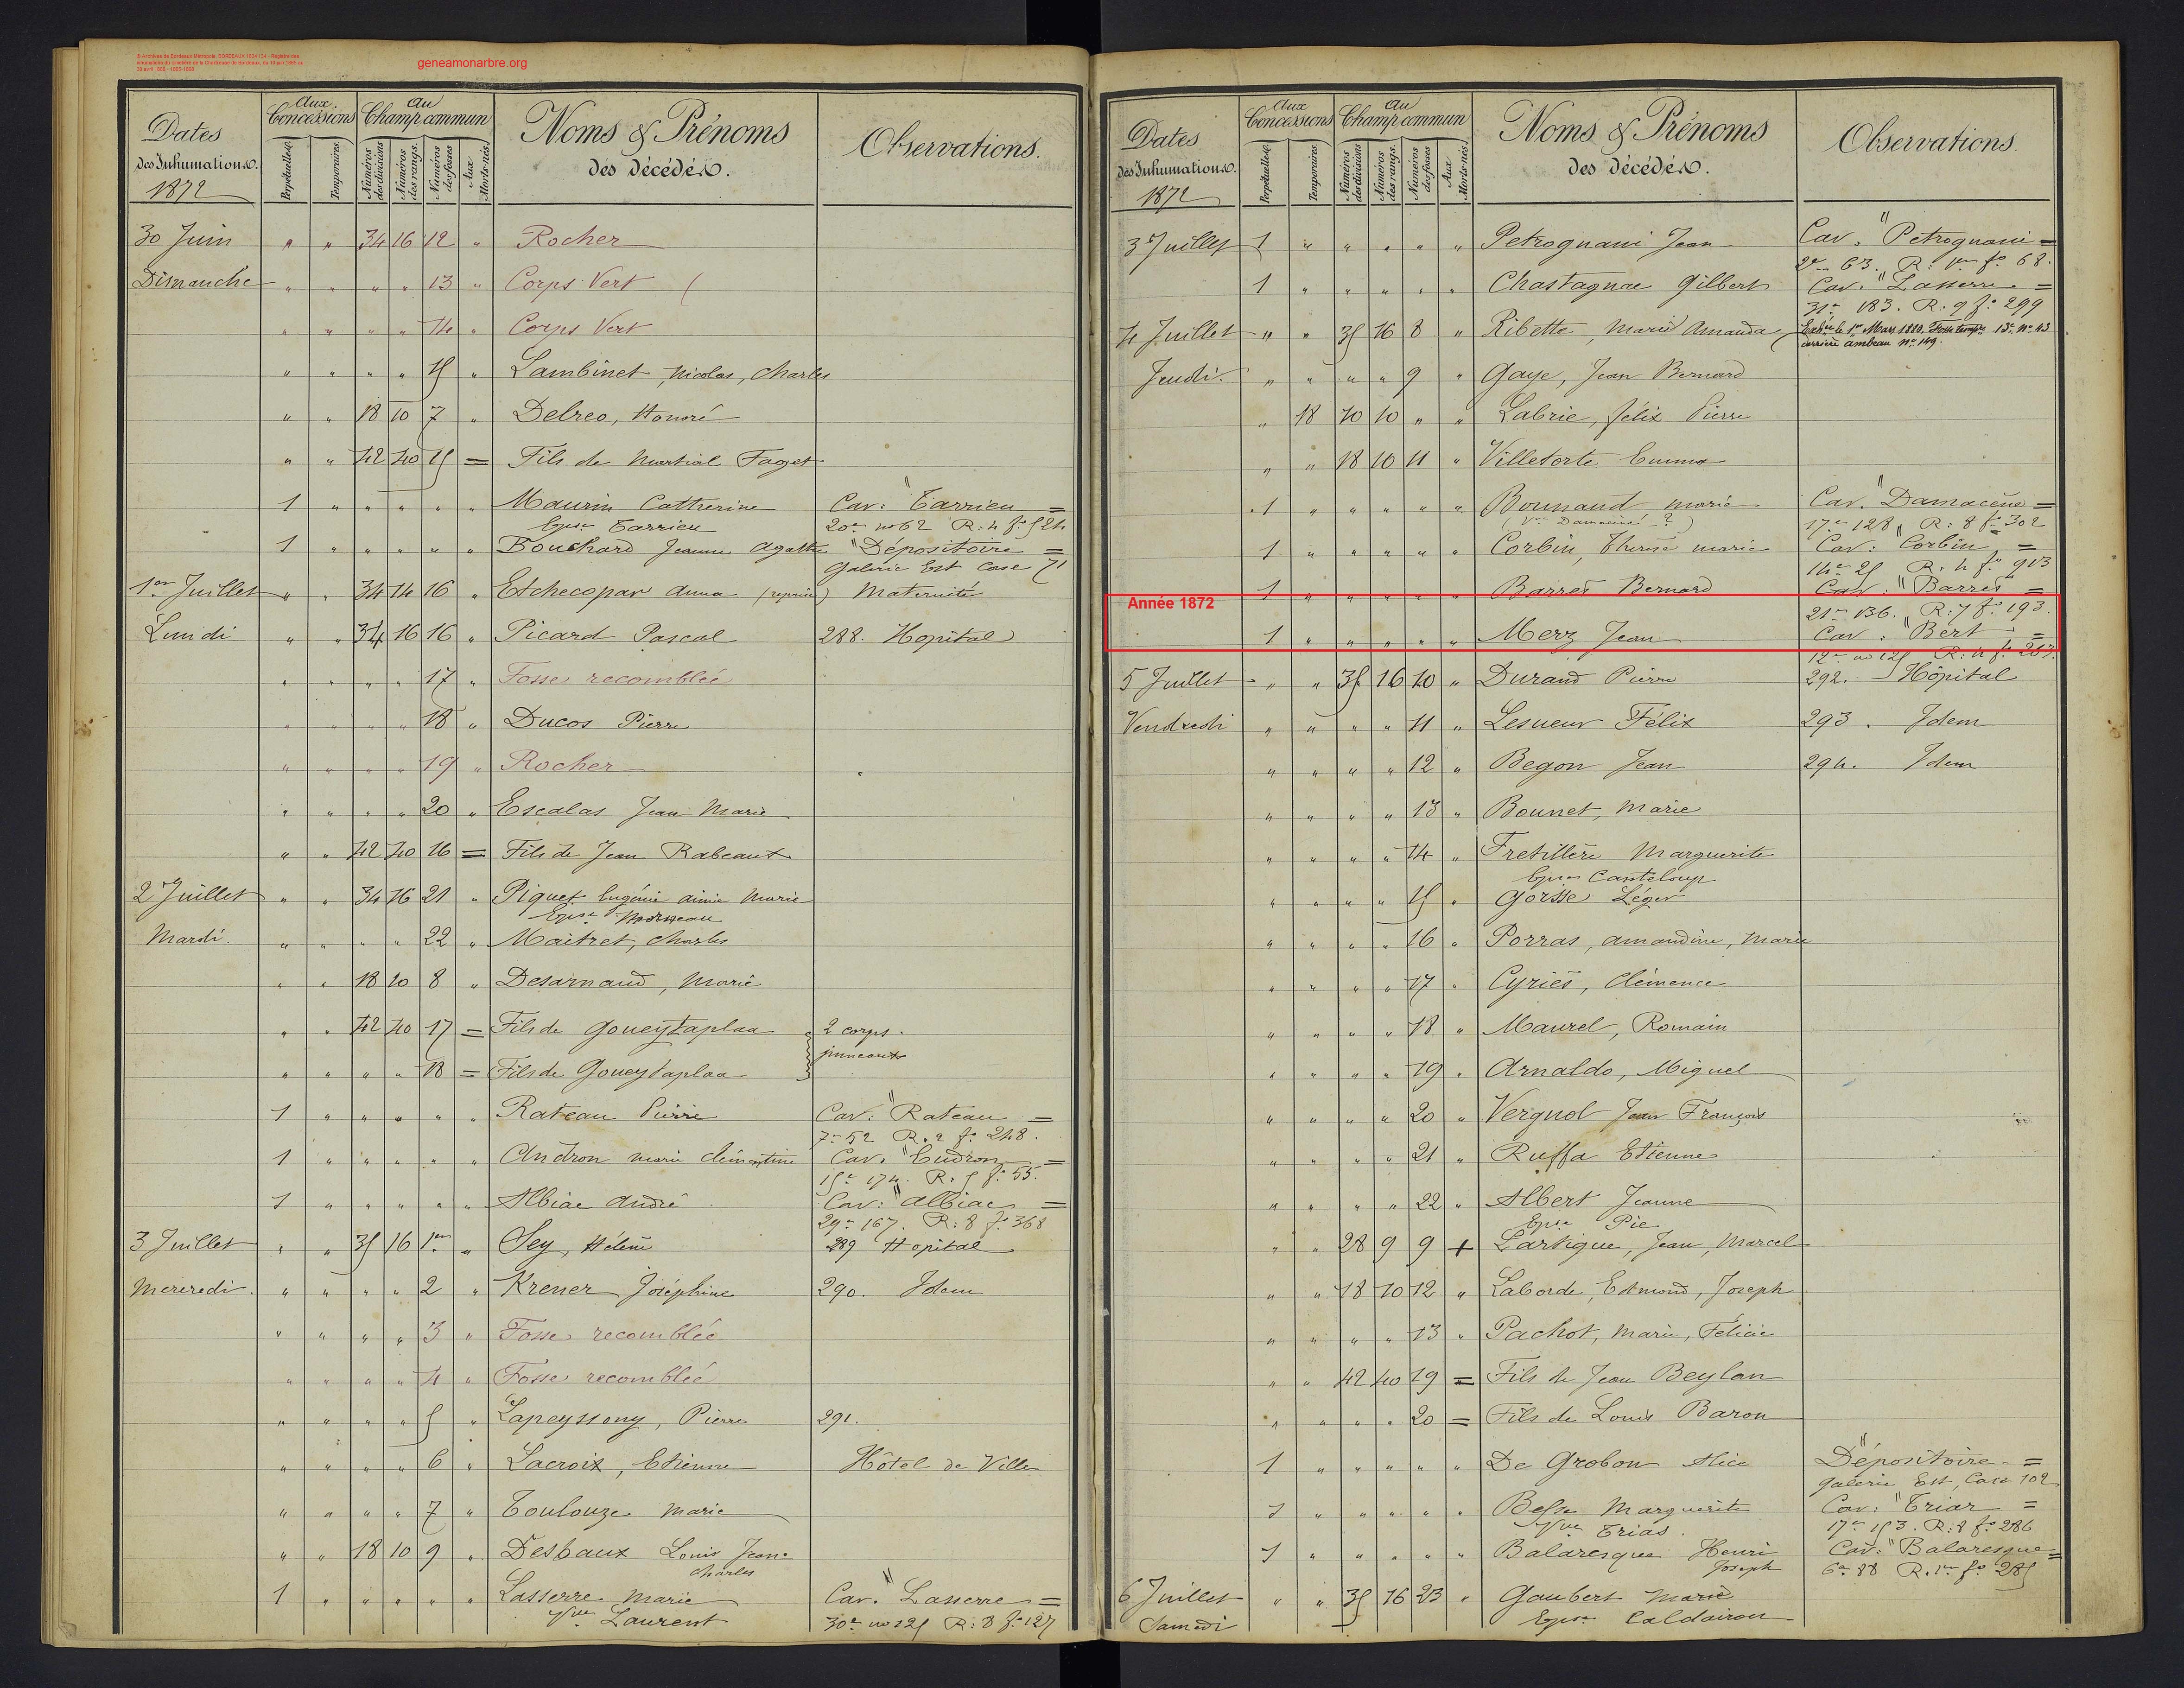 geneamonarbre.org
Dates des Inhumations. 1872 | Aux Concessions Perpétuelles. Temporaires. | Au Champ commun Numéros des divisions Numéros des rangs. Numéros des fosses Aux Morts-nés | Noms & Prénoms des décédés. | Observations.
30 Juin " " 34 16 12 " Rocher
Dimanche " " " " 13 " Corps Vert
" " " " 14 " Corps Vert
" " " " 15 " Lambinet, Nicolas, Charles
" " 18 10 7 " Delreo, Honoré
" " 42 40 15 = Fils de Martial Faget
1 " " " " " Maurin Catherine Cav: "Tarrieu =
Epse Tarrieu 20e no 62 R: 4 fo 524
1 " " " " " Bouchard Jeanne Agathe "Dépositoire =
Galerie Est Case 71
1er Juillet " " 34 14 16 " Etchecopar Anna (reprise) Maternité
Lundi " " 34 16 16 " Picard Pascal 288. Hopital
" " " " 17 " Fosse recomblée
" " " " 18 " Ducos Pierre
" " " " 19 " Rocher
" " " " 20 " Escalas Jean Marie
" " 42 40 16 = Fils de Jean Rabeaux
2 Juillet " " 34 16 21 " Piquet Eugénie Aimée Marie
Epse
Mardi. " " " " 22 " Maitret, Charles
" " 18 10 8 " Desarnaud, Marie
" " 42 40 17 = Fils de Goueytaplaa 2 corps.
jumeaux
" " " " 18 = Fils de Goueytaplaa
1 " " " " " Rateau Pierre Cav: "Rateau =
7e 52 R. 2 fo 248.
1 " " " " " Andron Marie Clémentine Cav. =
15e 174. R. 5 fo 55.
1 " " " " " Albiac André Cav: "Albiac =
29e 167. R: 8 fo 368
3 Juillet " " 35 16 1er " Sey, Hélène 289 Hopital
Mercredi. " " " " 2 " Krener Joséphine 290. Idem
" " " " 3 " Fosse recomblée
" " " " 4 " Fosse recomblée
" " " " 5 " Lapeyssony, Pierre 291.
" " " " 6 " Lacroix, Etienne Hôtel de Ville
" " " " 7 " Toulouze Marie
" " 18 10 9 " Desbaux Louis Jean
Charles
1 " " " " " Lasserre Marie Cav. "Lasserre =
Vve Laurent 30e no 125 R: 8 fo 127
Dates des Inhumations. 1872 | Aux Concessions Perpétuelles. Temporaires. | Au Champ commun Numéros des divisions Numéros des rangs. Numéros des fosses Aux Morts-nés | Noms & Prénoms des décédés. | Observations.
3 Juillet 1 " " " " " Petrognani Jean Cav. "Petrognani =
2e 63. R: 1er fo 68.
1 " " " " " Chastagnac Gilbert Cav. "Lasserre =
31e 183. R. 9 fo 299
4 Juillet " " 35 16 8 " Ribette, Marie Amanda
no 149.
Jeudi. " " " " 9 " Gaye, Jean Bernard
" 18 10 10 " " Labrie, Félix Pierre
" " 18 10 11 " Villetorte Emma
1 " " " " " Bounaud Marie Cav. "Damacène =
17e 128 R: 8 fo 302
1 " " " " " Corbin, Therese Marie Cav: "Corbin =
14e 25 R: 4 fo 913
1 " " " " " Barrès Bernard Cav: "Barrès =
Année 1872
21e 136. R: 7 fo 193.
1 " " " " " Merz Jean Cav: "Bert =
12e no 125 R: 4 fo 267.
5 Juillet " " 35 16 10 " Durand Pierre 292. Hôpital
Vendredi " " " " 11 " Lesueur Félix 293. Idem
" " " " 12 " Begon Jean 294. Idem
" " " " 13 " Bounet, Marie
" " " " 14 " Fretillère Marguerite
Epse Canteloup
" " " " 15 " Gorsse Léger
" " " " 16 " Porras, Amandine, Marie
" " " " 17 " Cyriès, Clémence
" " " " 18 " Maurel, Romain
" " " " 19 " Arnaldo, Miguel
" " " " 20 " Vergnol Jean François
" " " " 21 " Ruffa Etienne
" " " " 22 " Albert Jeanne
Epse Pie
" " 28 9 9 + Lartigue, Jean, Marcel
" " 18 10 12 " Laborde, Edmond, Joseph
" " " " 13 " Pachot, Marie, Félicie
" " 42 40 19 = Fils de Jean Beylan
" " " " 20 = Fils de Louis Baron
1 " " " " " De Grobon Alice "Dépositoire =
Galerie Est, Case 102
1 " " " " " Besse Marguerite Cav: "Triar =
Vve Trias. 17e 153. R: 8 fo 286
1 " " " " " Balaresque Henri Cav: "Balaresque =
Joseph 6e 88 R. 1er fo 285
6 Juillet " " 35 16 23 " Gaubert Marie
Samedi Epse Caldairou